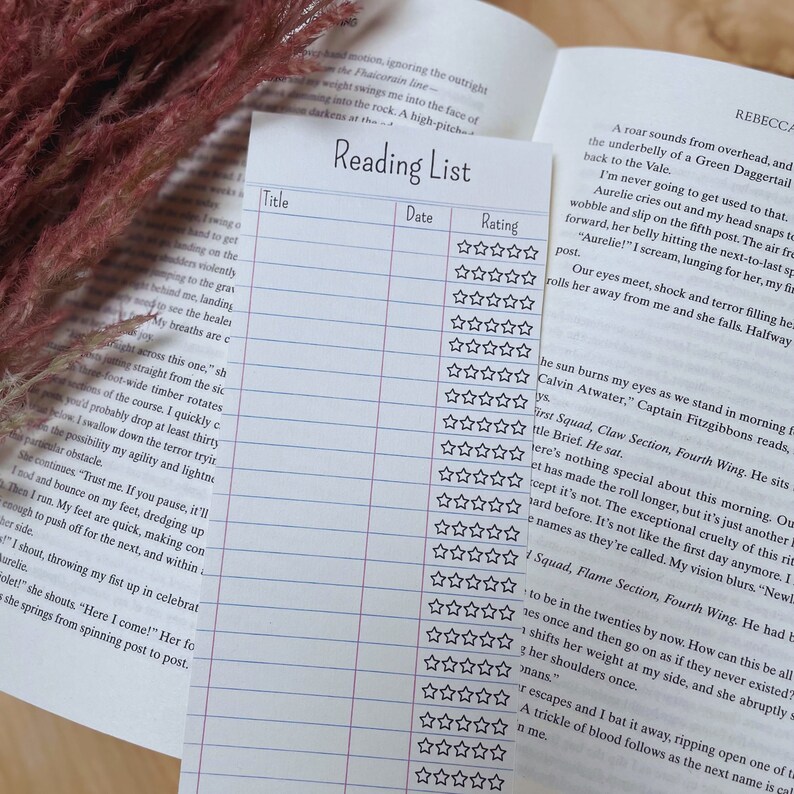 ING
over-hand motion, ignoring the outright
from the Fhaicorain line—
my weight swings me into the face of
into the rock. A high-pitched
darkens at the
I swing o
hand to get
landing on the
shudders violently
jumping to the grav
right behind me, landing
need to see the healer
My breaths are c
joy.
straight across this one,” sh
posts jutting straight from the sid
three-foot-wide timber rotates
sections of the course. I quickly c
you’d probably drop at least thirty
below. I swallow down the terror tryi
on the possibility my agility and lightne
particular obstacle.
She continues. “Trust me. If you pause, it’ll
I nod and bounce on my feet, dredging up
Then I run. My feet are quick, making con
enough to push off for the next, and within a
her side.
I shout, throwing my fist up in celebrat
Aurelie.
she shouts. “Here I come!” Her fo
she springs from spinning post to post.
Reading List
Title Date Rating
REBECCA
A roar sounds from overhead, and
the underbelly of a Green Daggertail
back to the Vale.
I’m never going to get used to that.
Aurelie cries out and my head snaps to
wobble and slip on the fifth post. The air fre
forward, her belly hitting the next-to-last sp
“Aurelie!” I scream, lunging for her, my fin
post.
Our eyes meet, shock and terror filling he
rolls her away from me and she falls. Halfway
he sun burns my eyes as we stand in morning f
Calvin Atwater,” Captain Fitzgibbons reads,
ys.
First Squad, Claw Section, Fourth Wing. He sits
ttle Brief. He sat.
ere’s nothing special about this morning. Ou
et has made the roll longer, but it’s just another
cept it’s not. The exceptional cruelty of this rit
hard before. It’s not like the first day anymore. I
e names as they’re called. My vision blurs. “Newl
d Squad, Flame Section, Fourth Wing. He had b
e to be in the twenties by now. How can this be all
nes once and then go on as if they never existed?
n shifts her weight at my side, and she abruptly s
g her shoulders once.
onans.”
r escapes and I bat it away, ripping open one of th
A trickle of blood follows as the next name is cal
n me.